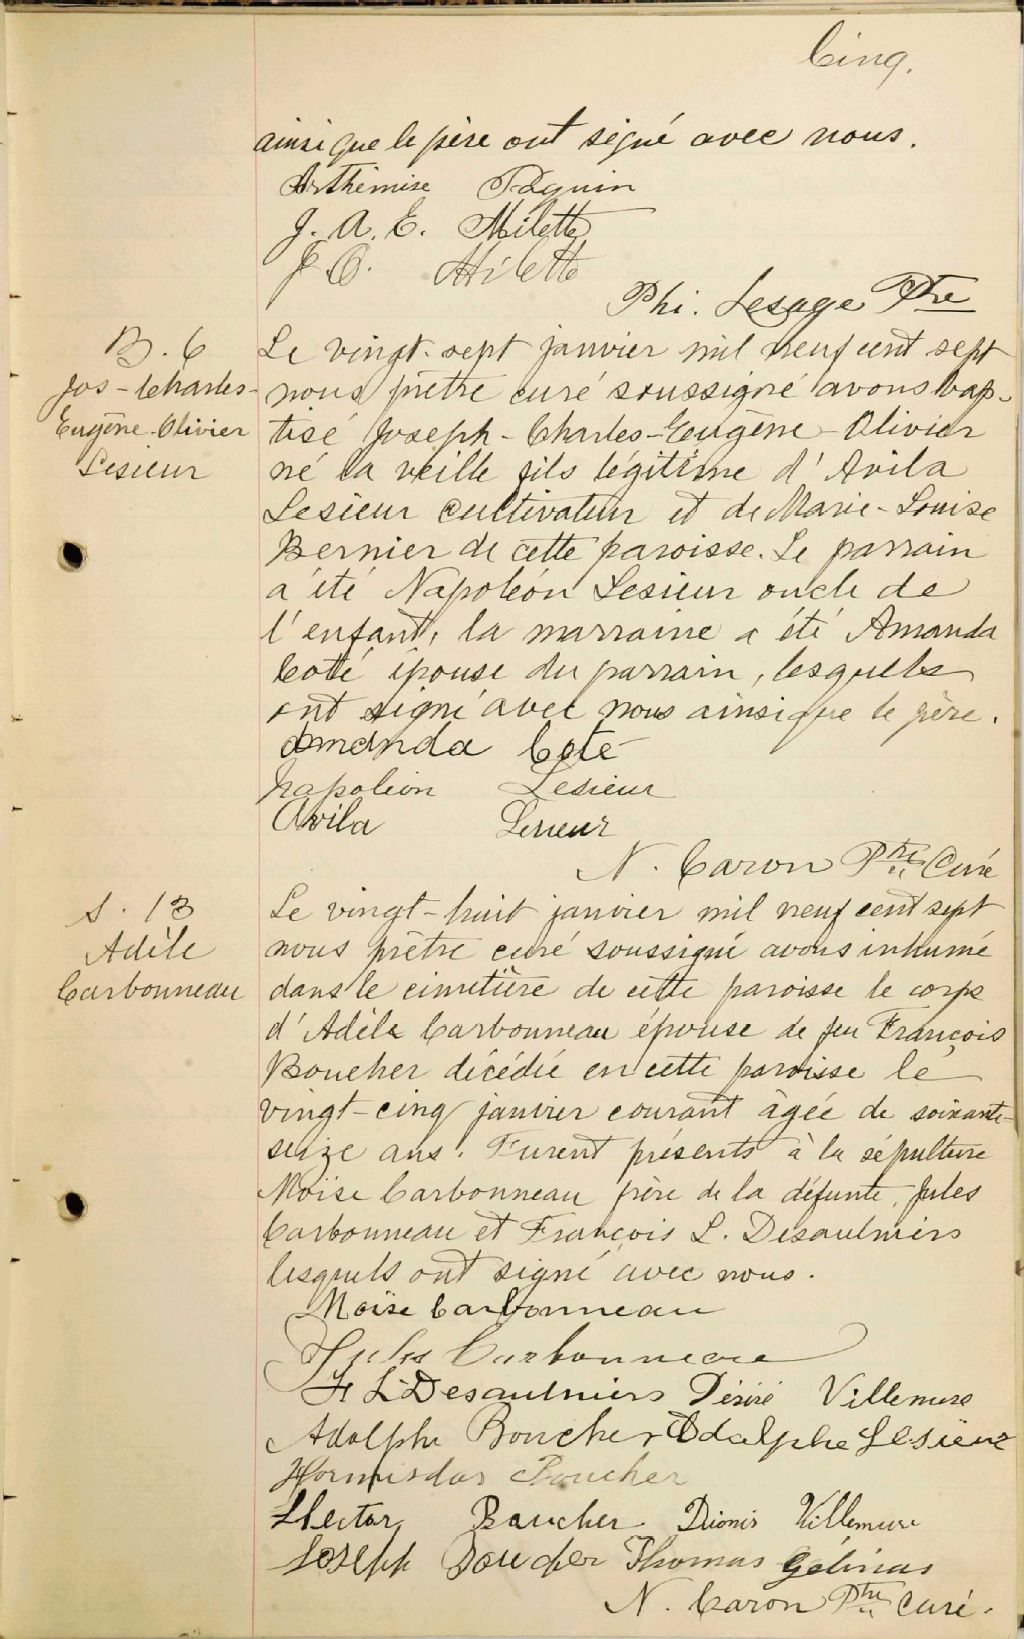 Cinq.
ainsi que le père ont signé avec nous.
Arthémise Paquin
J. A. E. Milette
J. O. Milette
Phi. Lesage Ptre
B. 6
Jos-Charles-
Eugène-Olivier
Lesieur
Le vingt-sept janvier mil neuf cent sept
nous prêtre curé soussigné avons bap-
tisé Joseph-Charles-Eugène-Olivier
né la veille fils légitime d'Avila
Lesieur cultivateur et de Marie-Louise
Bernier de cette paroisse. Le parrain
a été Napoléon Lesieur oncle de
l'enfant, la marraine a été Amanda
Coté épouse du parrain, lesquels
ont signé avec nous ainsi que le père.
Amanda Cote
Napoleon Lesieur
Avila Lesieur
N. Caron Ptre Curé
S. 13
Adèle
Carbonneau
Le vingt-huit janvier mil neuf cent sept
nous prêtre curé soussigné avons inhumé
dans le cimetière de cette paroisse le corps
d'Adèle Carbonneau épouse de feu François
Boucher décédée en cette paroisse le
vingt-cinq janvier courant âgée de soixante-
seize ans. Furent présents à la sépulture
Moïse Carbonneau frère de la défunte, Jules
Carbonneau et François L. Desaulniers
lesquels ont signé avec nous.
Moïse Carbonneau
Jules Carbonneau
F L Desaulniers Désiré Villemure
Adolphe Boucher Adolphe Lesieur
Hormisdas Boucher
Hector Boucher Dionis Villemure
Joseph Boucher Thomas Gélinas
N. Caron Ptre Curé.